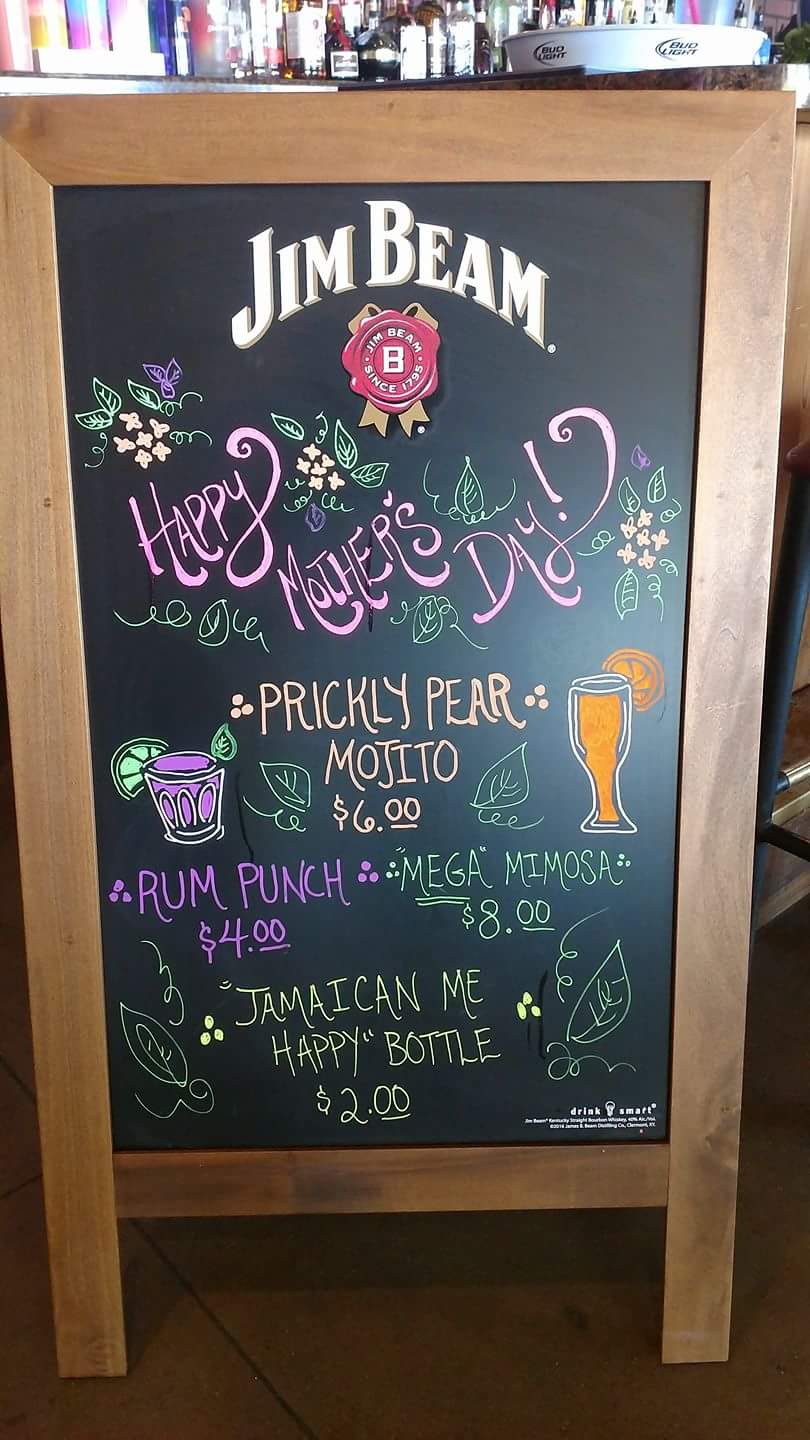 BUD LIGHT BUD LIGHT
JIM BEAM®
JIM BEAM
B
SINCE 1795
®
HAPPY MOTHER'S DAY!
PRICKLY PEAR
MOJITO
$6.00
RUM PUNCH
$4.00
"MEGA" MIMOSA
$8.00
"JAMAICAN ME
HAPPY" BOTTLE
$2.00
drink smart®
Jim Beam® Kentucky Straight Bourbon Whiskey, 40% Alc./Vol.
©2016 James B. Beam Distilling Co., Clermont, KY.